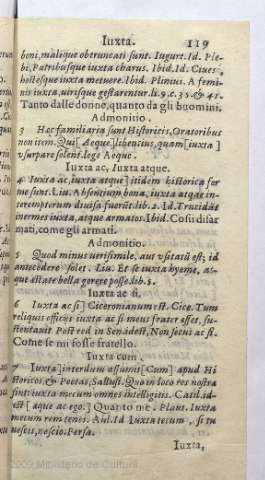 Iuxta. 119
boni, malique obtruncati sunt. Iugurt. Id. Ple-
bi, Patribusque iuxta charus. Ibid. Id. Ciues,
hostesque iuxta metuere. Ibid. Plinius. A femi-
nis iuxta, uirisque gestarentur. li. 9. c. 35. & 41.
Tanto dalle donne, quanto da gli huomini.
Admonitio.
3 Hæc familiaria sunt Historicis, Oratoribus
non item. Qui [Aeque] libentius, quam [iuxta]
vsurpare solent. lege Aeque.
Iuxta ac, Iuxta atque.
4 Iuxta ac, iuxta atque itidem historica fer
me sunt. Liu. Absentium bona, iuxta atque in-
teremptorum diuisa fuerūt. lib. 2. Id. Trucidāt
inermes iuxta, atque armatos. Ibid. Cosi disar
mati, come gli armati.
Admonitio.
5 Quod minus uerisimile, aut vsitatū est; id
antecedere solet. Liu. Et se iuxta hyeme, at-
que æstate bella gerere posse. lib. 5.
Iuxta ac si.
6 Iuxta ac si] Ciceronianum est. Cice. Tum
reliquis officijs iuxta ac si meus frater esset, su-
stentauit Post red. in Senād est, Non secus ac si.
Come se mi fosse fratello.
Iuxta cum.
7 Iuxta] interdum assumit [Cum] apud Hi
storicos & Poetas, Sallust. Quo in loco res nostra
sint iuxta mecum omnes intelligitis. Catil. id-
est [aque ac ego.] Quanto me. Plaut. Iuxta
mecum rem tenes. Aul. Id Iuxta tecum, si tu
nescis, nescio. Persa.
Iuxta,
2009 Ministerio de Cultura